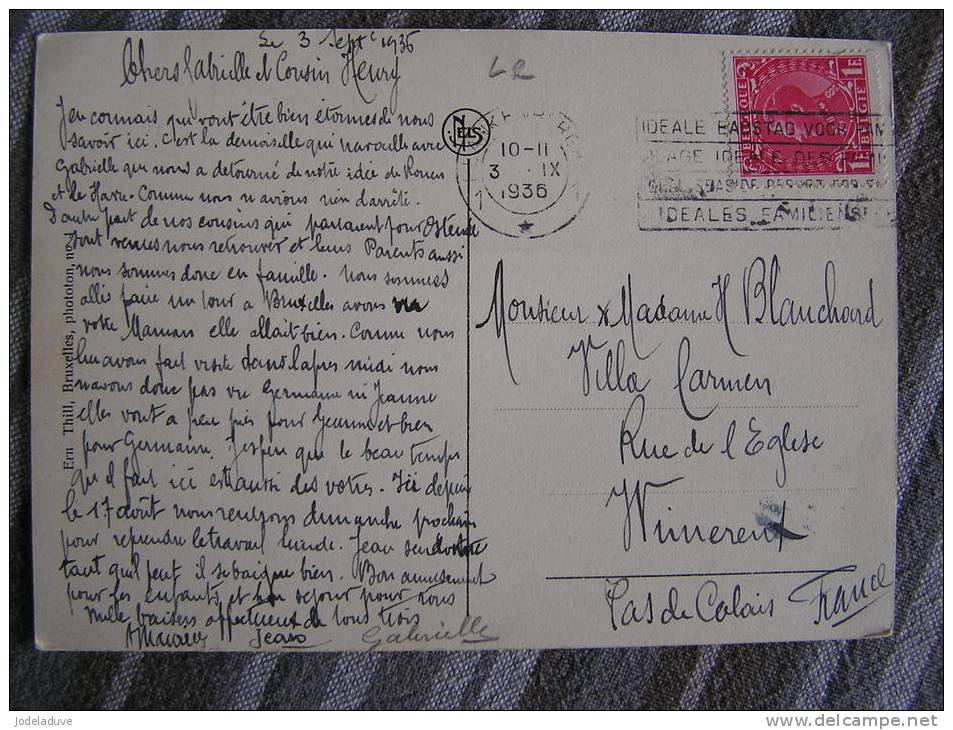 Le 3 Sept 1936
Chers Gabrielle et Cousin Henry
J'en connais qui vont être bien etonnes de nous
savoir ici. C'est la demoiselle qui travaille avec
Gabrielle qui nous a detourné de notre idée de Rouen
et le Havre. Comme nous n'avions rien d'arrêté.
D'autre part de nos cousins qui partaient pour Ostende
sont venues nous retrouver et leurs Parents aussi
nous sommes donc en famille. Nous sommes
allés faire un tour a Bruxelles avons vu
votre Maman elle allait bien. Comme nous
lui avons fait visite dans l'apres midi nous
n'avons donc pas vu Germaine ni Jeanne
elles vont a peu près pour Jeanne et bien
pour Germaine. J'espere que le beau temps
qu'il fait ici est aussi des votres. Ici depuis
le 17 août nous rendrons dimanche prochain
pour reprendre le travail lundi. Jean s'en donne
tant qu'il peut il se baigne bien. Bon amusement
pour les enfants et bon sejour pour vous
Mille baisers affectueux de tous trois
Maurice Jean Gabrielle
Ern Thill, Bruxelles, phototoion, no
NELS
10-11
3 IX
1936
1
BELGIQUE BELGIE 1F 1F
IDEALE BADSTAD VOOR FAM
PLAGE IDEALE DES FAMI
IDEALES FAMILIENS
Monsieur & Madame H Blanchard
Villa Carmen
Rue de l'Eglise
Wimereux
Pas de Calais France
Jodeladuve
http://www.delcampe.net